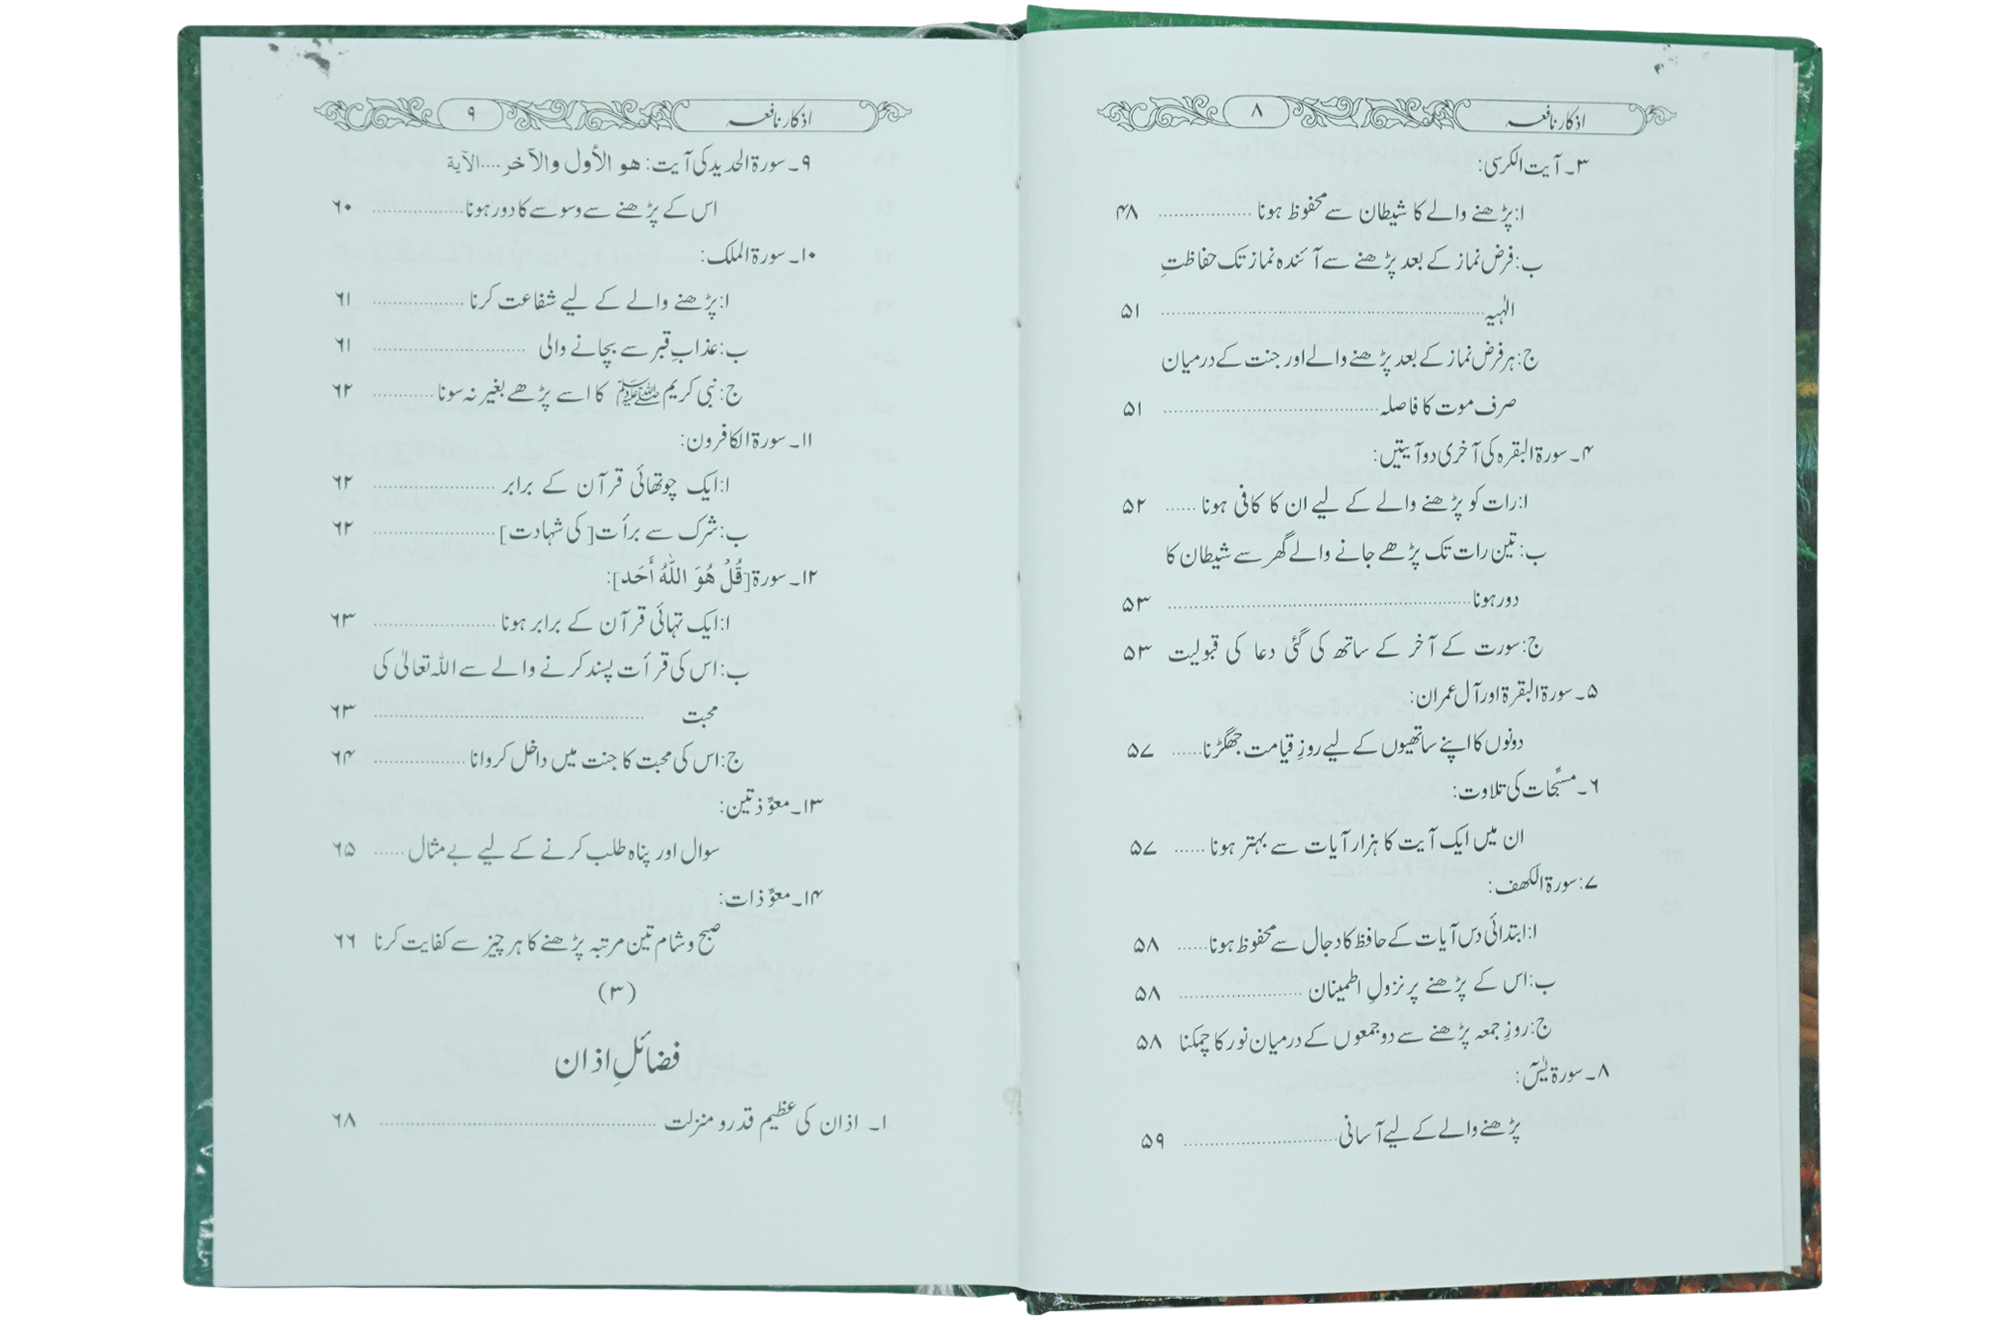 اذکار نافعہ
۸
۳۔ آیت الکرسی:
ا: پڑھنے والے کا شیطان سے محفوظ ہونا ............ ۴۸
ب: فرض نماز کے بعد پڑھنے سے آئندہ نماز تک حفاظتِ
الٰہیہ ............ ۵۱
ج: ہر فرض نماز کے بعد پڑھنے والے اور جنت کے درمیان
صرف موت کا فاصلہ ............ ۵۱
۴۔ سورۃ البقرہ کی آخری دو آیتیں:
ا: رات کو پڑھنے والے کے لیے ان کا کافی ہونا ...... ۵۲
ب: تین رات تک پڑھے جانے والے گھر سے شیطان کا
دور ہونا ............ ۵۳
ج: سورت کے آخر کے ساتھ کی گئی دعا کی قبولیت ۵۳
۵۔ سورۃ البقرۃ اور آل عمران:
دونوں کا اپنے ساتھیوں کے لیے روزِ قیامت جھگڑنا ...... ۵۷
۶۔ مسبِّحات کی تلاوت:
ان میں ایک آیت کا ہزار آیات سے بہتر ہونا ...... ۵۷
۷: سورۃ الکھف:
ا: ابتدائی دس آیات کے حافظ کا دجال سے محفوظ ہونا ...... ۵۸
ب: اس کے پڑھنے پر نزولِ اطمینان ............ ۵۸
ج: روزِ جمعہ پڑھنے سے دو جمعوں کے درمیان نور کا چمکنا ۵۸
۸۔ سورۃ یٰسٓ:
پڑھنے والے کے لیے آسانی ............ ۵۹
اذکار نافعہ
۹
۹۔ سورۃ الحدید کی آیت: هو الأول والآخر .... الآية
اس کے پڑھنے سے وسوسے کا دور ہونا ............ ۶۰
۱۰۔ سورۃ الملک:
ا: پڑھنے والے کے لیے شفاعت کرنا ............ ۶۱
ب: عذابِ قبر سے بچانے والی ............ ۶۱
ج: نبی کریم ﷺ کا اسے پڑھے بغیر نہ سونا ............ ۶۲
۱۱۔ سورۃ الکافرون:
ا: ایک چوتھائی قرآن کے برابر ............ ۶۲
ب: شرک سے برأت [کی شہادت] ............ ۶۲
۱۲۔ سورۃ [قُلْ هُوَ اللّٰهُ أَحَد]:
ا: ایک تہائی قرآن کے برابر ہونا ............ ۶۳
ب: اس کی قرأت پسند کرنے والے سے اللہ تعالیٰ کی
محبت ............ ۶۳
ج: اس کی محبت کا جنت میں داخل کروانا ............ ۶۴
۱۳۔ معوِّذتین:
سوال اور پناہ طلب کرنے کے لیے بے مثال ...... ۶۵
۱۴۔ معوِّذات:
صبح و شام تین مرتبہ پڑھنے کا ہر چیز سے کفایت کرنا ۶۶
(۳)
فضائلِ اذان
۱۔ اذان کی عظیم قدر و منزلت ............ ۶۸